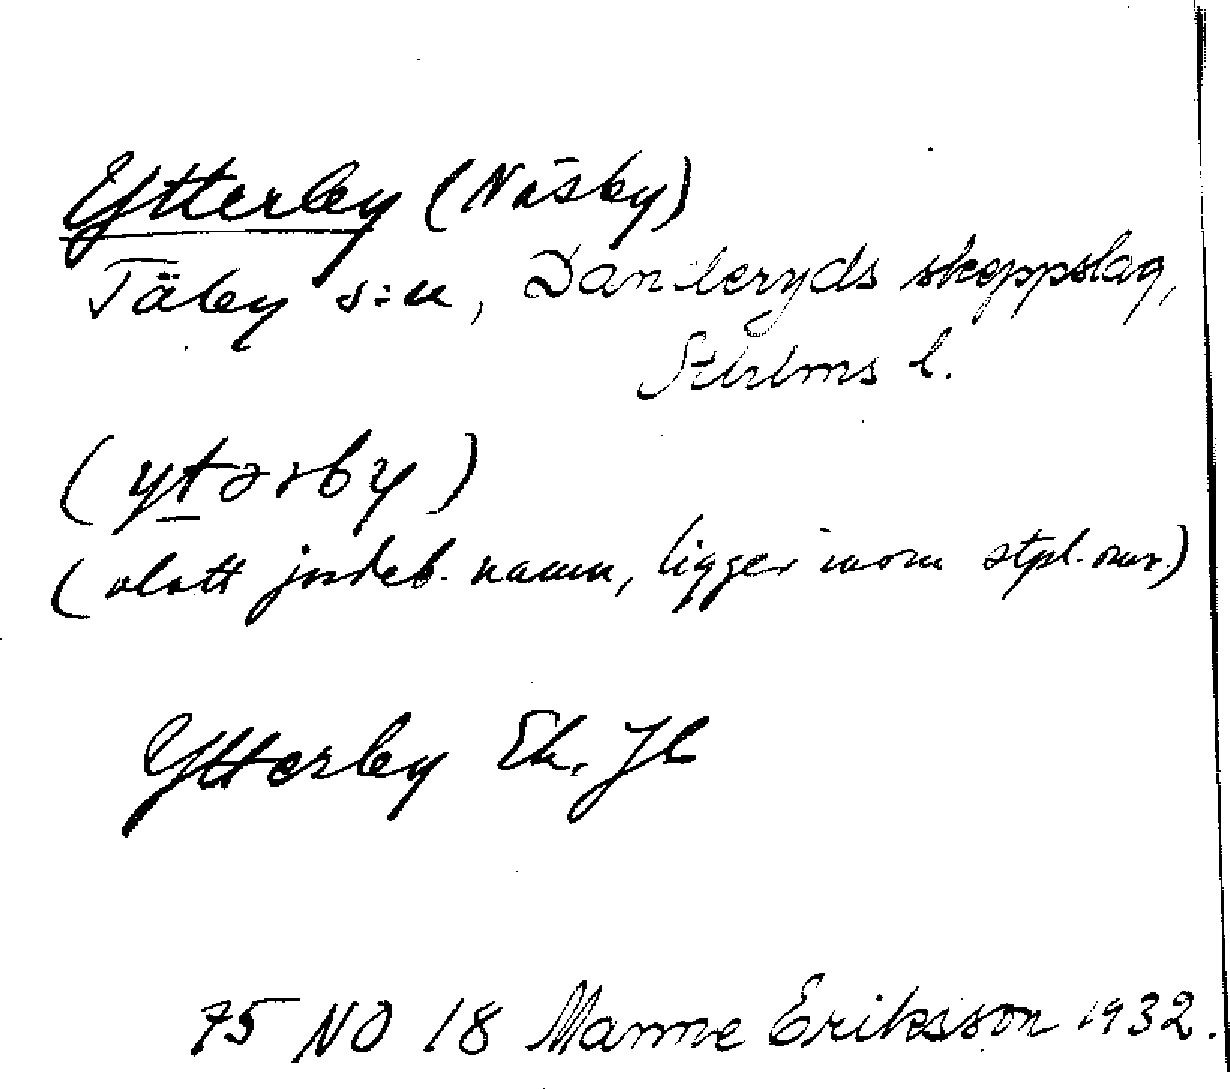 Ytterby (Näsby)
Täby s:n, Danderyds skeppslag,
Sthlms l.
(ytərby)
(blott jordeb. namn, ligger inom stpl. omr.)
Ytterby Ek. Jb
75 NO 18 Manne Eriksson 1932.